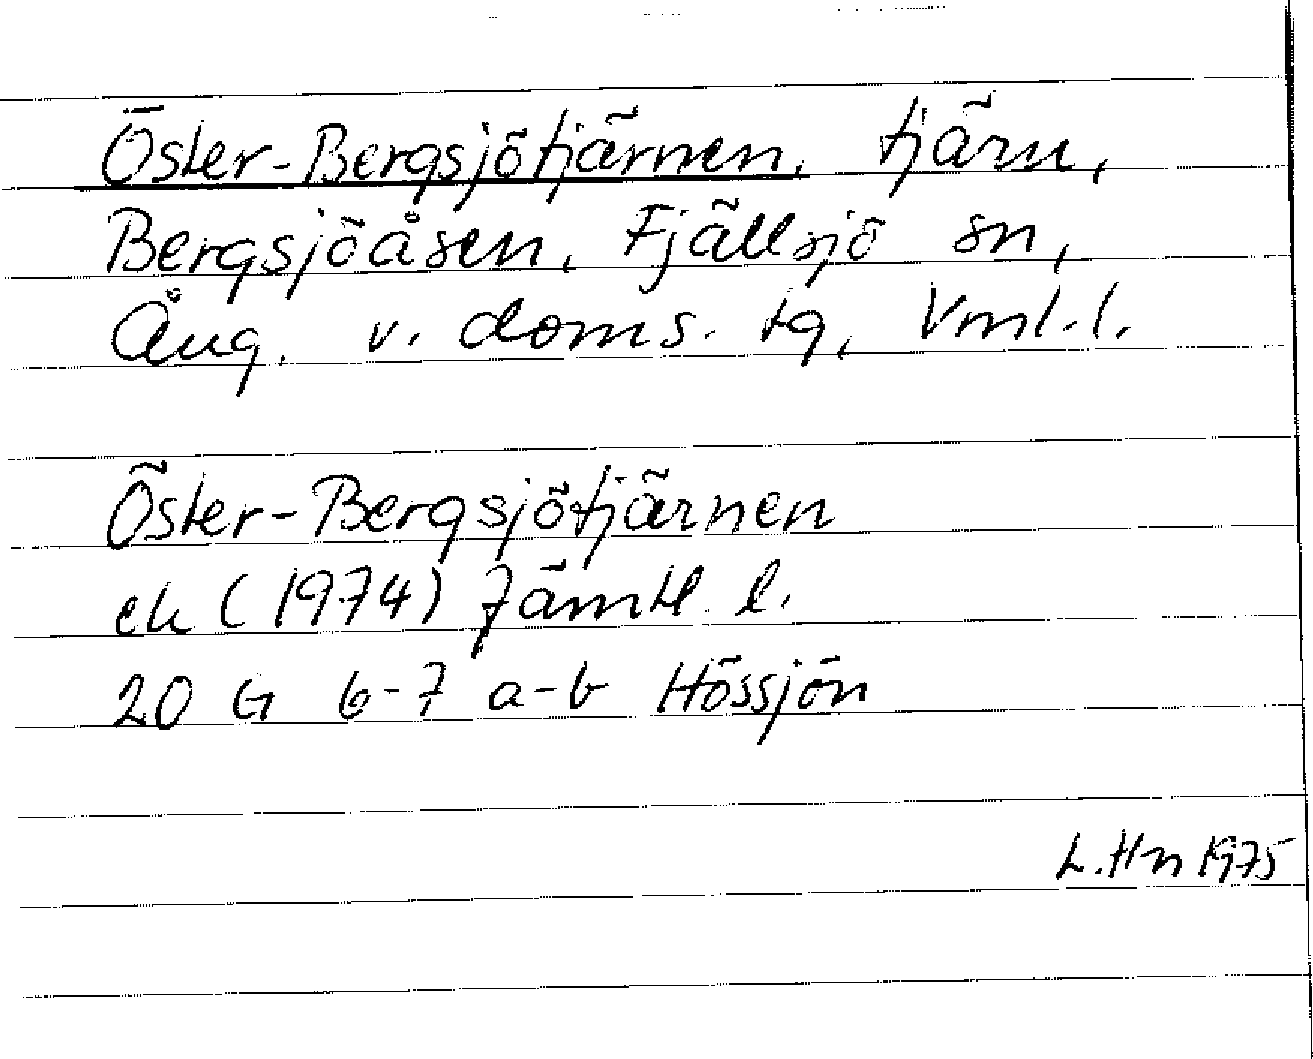 Öster-Bergsjötjärnen, tjärn,
Bergsjöåsen, Fjällsjö sn,
Ång. v. doms. tg, Vml. l.
Öster-Bergsjötjärnen
ek (1974) Jämtl. l.
20 G 6-7 a-b Hössjön
L. Hn 1975